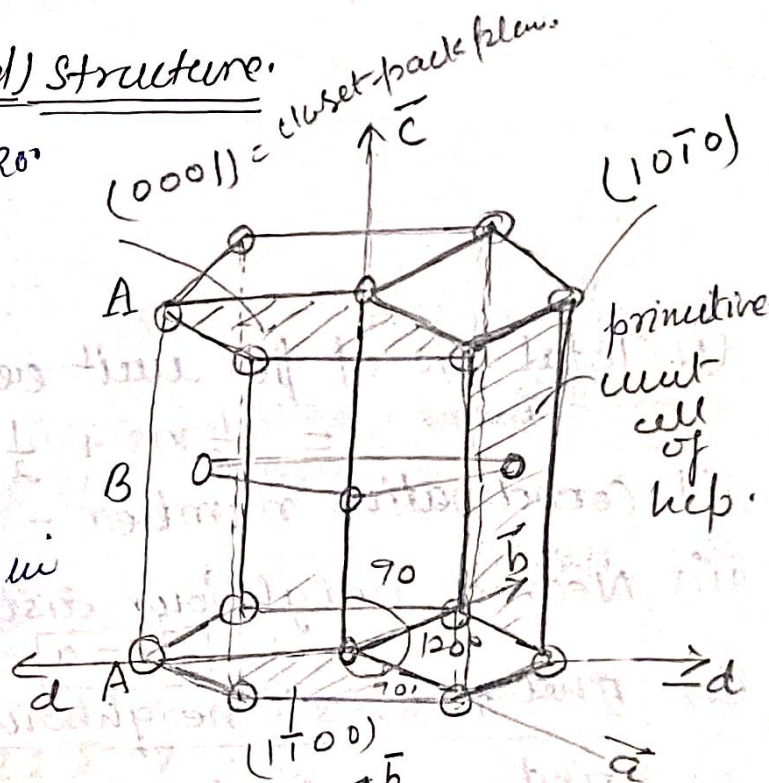 d) Structure.
(0001) = closet-pack plan.
c̄
(101̄0)
A
primitive
unit
cell
of
hcp.
B
90
b⃗
120°
d
A
-d
(11̄00)
a⃗
b̄